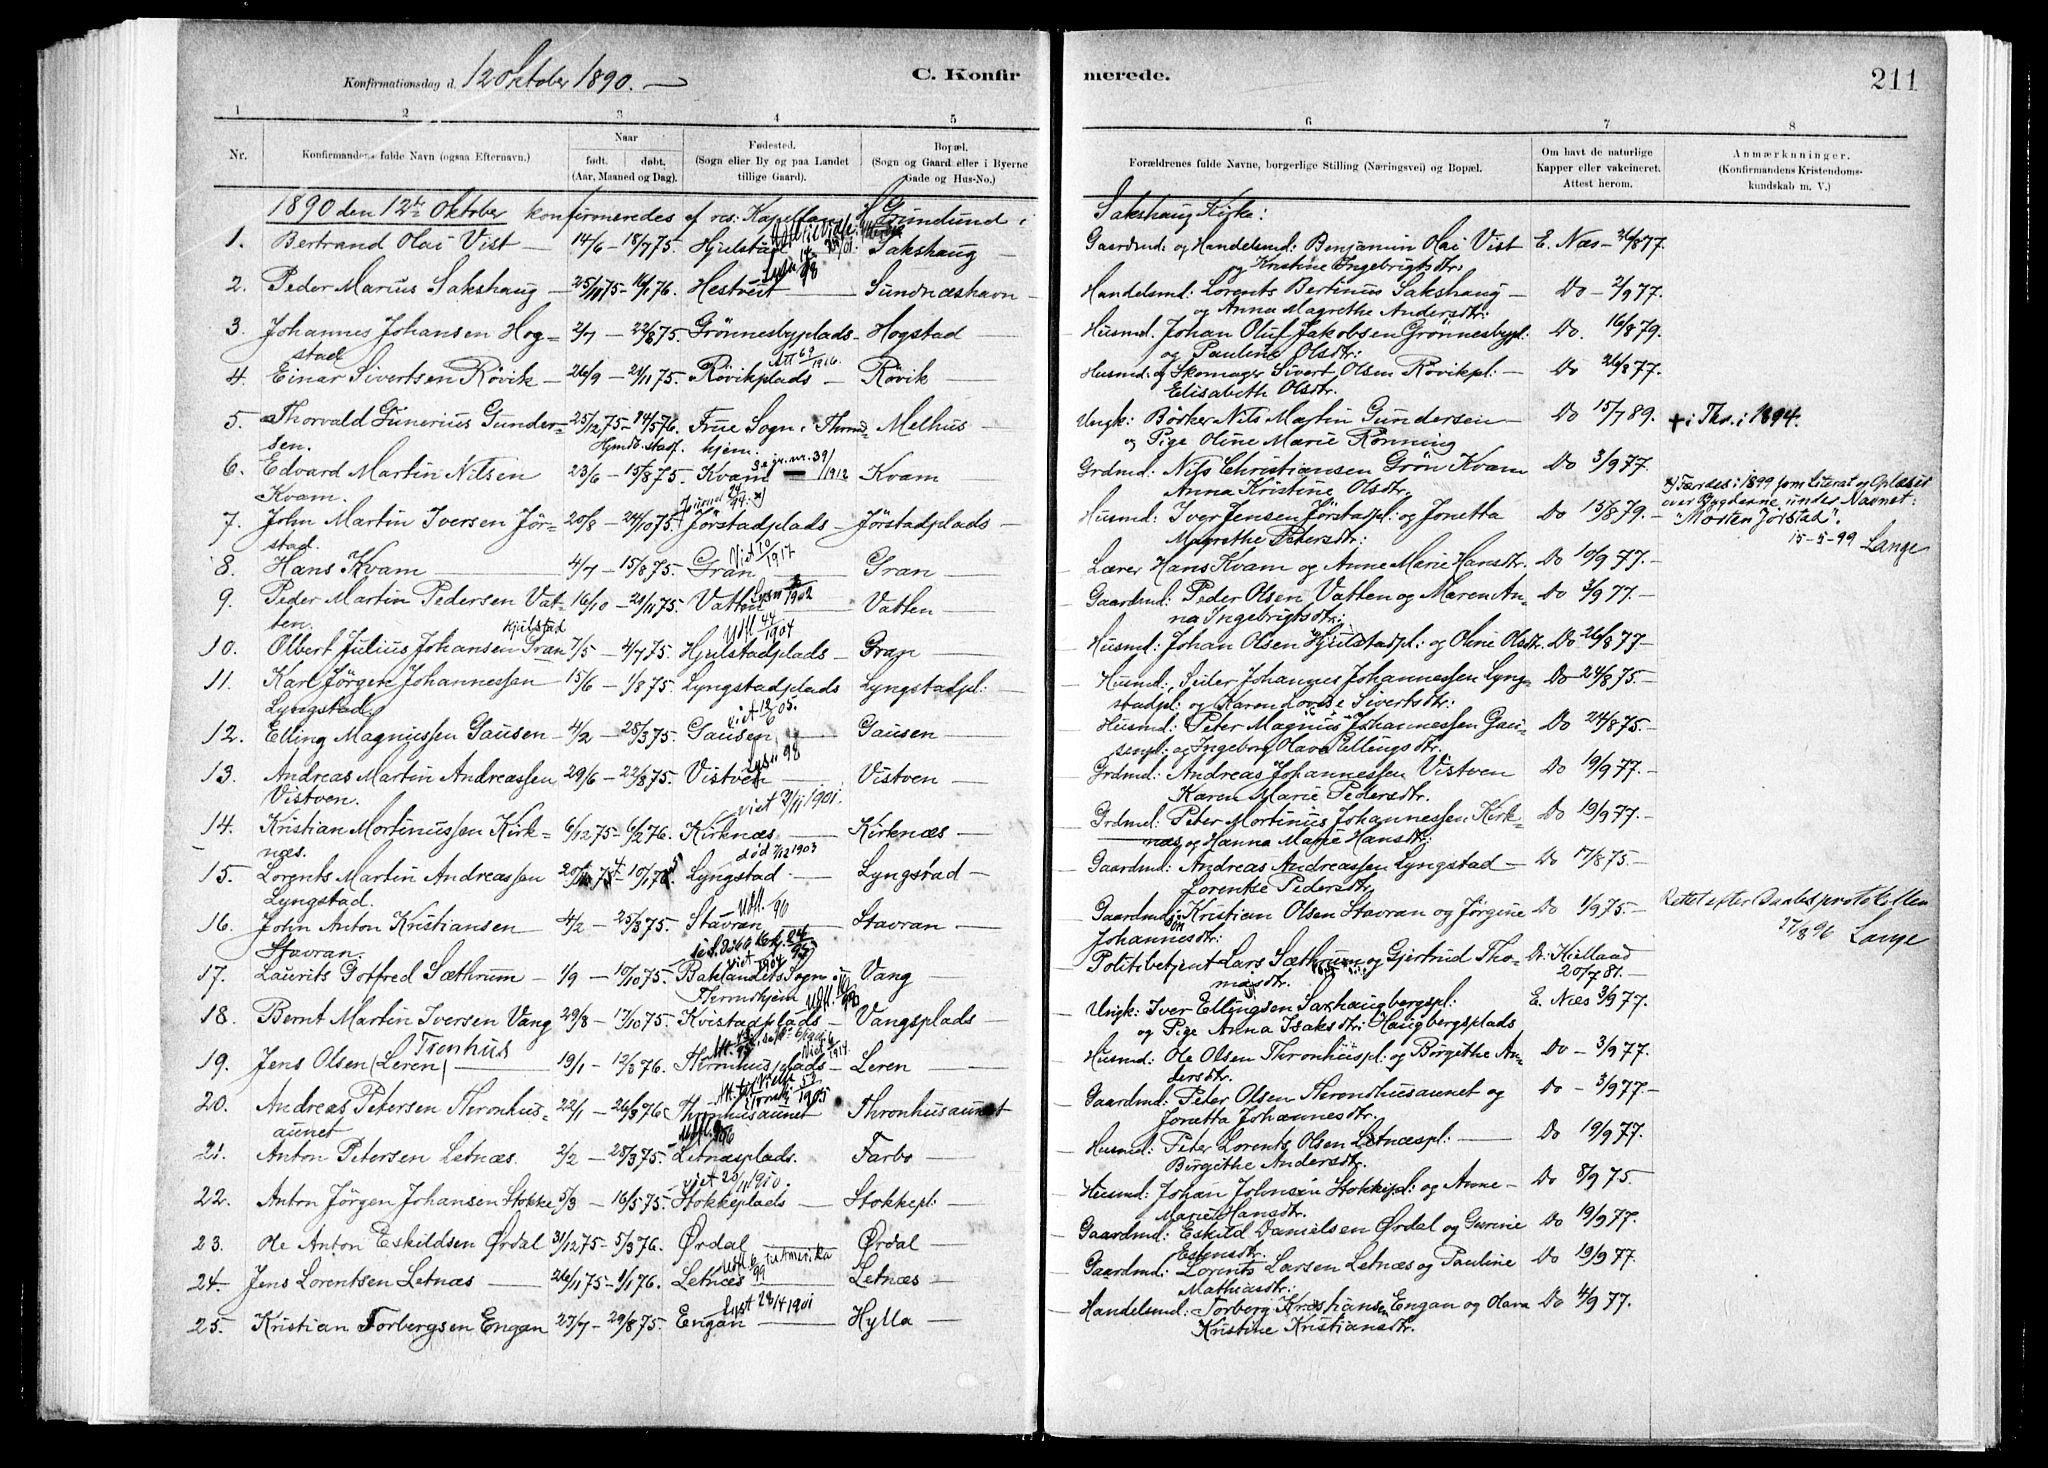 Konfirmationsdag d. 12 Oktober 1890.
C. Konfirmerede.
211
1 2 3 4 5 6 7 8
Nr.
Konfirmandens fulde Navn (ogsaa Efternavn.)
Naar
født. døbt.
(Aar, Maaned og Dag).
Fødested.
(Sogn eller By og paa Landet
tillige Gaard).
Bopæl.
(Sogn og Gaard eller i Byerne
Gade og Hus-No.)
Forældrenes fulde Navne, borgerlige Stilling (Næringsvei) og Bopæl.
Om havt de naturlige
Kapper eller vakcineret.
Attest herom.
Anmærkninger.
(Konfirmandens Kristendoms-
kundskab m. V.)
1890 den 12te Oktober konfirmeredes af res: Kapellan H Grundund i Sakshaug Kirke:
1. Bertrand Olai Vist 14/6 – 18/7 75. Hjulstad Sakshaug Gaardmd: og Handelsmd: Benjamin Olai Vist E. Næs – 26/8 77.
og Kristine Ingebrigtsdtr:
2. Peder Marius Sakshaug 25/11 75 – 16/1 76. Hestveit Sundnæshavn Handelsmd: Lorents Bertinus Sakshaug Do – 2/9 77.
og Anna Magrethe Andersdtr:
3. Johannes Johansen Hog- 2/7 – 22/8 75. Grönnesbyplads Hogstad Husmd. Johan Oluf Jakobsen Grönnesbypl: Do 16/8 79.
stad og Pauline Olsdtr:
Att 69/1916.
4. Einar Sivertsen Rövik 26/9 – 21/11 75. Rövikplads Rövik Husmd: og Skomager Sivert Olsen Rövikpl: Do 26/8 77.
Elisabeth Olsdtr.
5. Thorvald Gunerius Gunder- 25/12 75 – 14/5 76. Frue Sogn, Thrond- Melhus Ungk: Börker Nils Martin Gundersen Do 15/7 89. + i Thr. i 1894.
sen. hjem. og Pige Oline Marie Rönning
6. Edvard Martin Nilsen 23/6 – 15/8 75. Kvam Kvam Grdmd: Nils Christiansen Grön Kvam Do 3/9 77.
Kvam. Se jr. nr. 39/1912 Anna Kristine Olsdtr.
x) Færdes i 1899 som Literat og Oplæser
over Bygderne under Navnet:
"Morten Jörstad".
15-5-99 Lange
7. John Martin Iversen Jör- 20/8 – 24/10 75. Jörstadplads Jörstadplads Husmd: Iver Jensen Jörstadpl: og Jonetta Do 15/8 79.
stad. Magrethe Petersdtr:
8. Hans Kvam 4/7 – 15/8 75. Gran Gran Lærer Hans Kvam og Anne Marie Hansdtr. Do 10/9 77.
Viet 10/1917
9. Peder Martin Pedersen Vat- 16/10 – 21/11 75. Vatten Vatten Gaardmd: Peder Olsen Vatten og Maren An- Do 3/9 77.
ten. na Ingebrigtsdtr:
Udfl 44/1904
10. Olbert Julius Johansen Gran Kjulstad 7/5 – 4/7 75. Hjulstadplads Gran Husmd: Johan Olsen Hjulstadpl: og Oline Olsdtr. Do 26/8 77
11. Karl Jörgen Johannessen 15/6 – 1/8 75. Lyngstadplads Lyngstadpl: Husmd:, Seiler Johannes Johannessen Lyng- Do 24/8 75.
Lyngstad. stadpl: og Karen Lovise Sivertsdtr:
12. Elling Magnussen Gausen 4/2 – 28/3 75. Gausen Gausen Husmd: Peter Magnus Johannessen Gau- Do 24/8 75.
senpl: og Ingeborg Olava Ellingsdtr.
13. Andreas Martin Andreassen 29/6 – 22/8 75. Vistven Vistven Grdmd: Andreas Johannessen Vistven Do 19/9 77.
Vistven. Karen Marie Pedersdtr.
viet 3/11 1901.
14. Kristian Mortinussen Kirk- 6/12 75 – 6/2 76. Kirknæs Kirknæs Grdmd: Peter Mortinius Johannessen Kirk- Do 19/9 77.
næs. næs og Hanna Marie Hansdtr:
død 7/12 1903
15. Lorents Martin Andreassen Lyngstad Lyngstad Gaardmd: Andreas Andreassen Lyngstad Do 17/8 75.
Lyngstad. Lorentse Pedersdtr.
Rettet efter Daabsprotokollen
27/8 96 Lange
16. John Anton Kristiansen 4/2 – 25/3 75. Stavran Stavran Gaardmd: Kristian Olsen Stavran og Jörgine Do 1/9 75.
Stavran. Johannesdtr:
17. Laurits Gotfred Sæthrum 1/9 – 10/10 75. Baklandets Sogn i Vang Politibetjent Lars Sæthrum og Gjertrud Tho- Dr. Hielland
Thrmdhjem masdtr. 20/7 81.
18. Bernt Martin Iversen Vang 29/8 – 17/10 75. Kvistadplads Vangsplads Ungk: Iver Ellingsen Saxhaugbergspl: E. Næs 3/9 77.
og Pige Anna Isaksdtr: Haugbergsplads
19. Jens Olsen (Leren) Tronhus 19/1 – 12/3 76. Thronhusplads Leren Husmd: Ole Olsen Thronhuspl: og Birgithe An- Do – 3/9 77.
dersdtr.
20. Andreas Petersen Thronhus- 22/1 – 26/3 76 Thronhusaunet Thronhusaunet Gaardmd: Peter Olsen Throndhusaunet og Do – 3/9 77
aunet Jonetta Johannesdtr.
21. Anton Petersen Letnæs. 2/2 – 28/3 75. Letnæsplads. Farbo Husmd: Peter Lorents Olsen Letnæspl: Do 19/9 77.
Birgithe Andersdtr.
22. Anton Jörgen Johansen Stokke 5/3 – 16/5 75. Stokkeplads Stokkepl: Husmd: Johan Johnsen Stokkepl: og Anne Do 8/9 75.
Marie Hansdtr.
23. Ole Anton Eskildsen Ørdal 31/12 75 – 5/3 76. Ørdal Ørdal Gaardmd: Eskild Danielsen Ørdal og Gurine Do 19/9 77.
Estensdtr.
24. Jens Lorentsen Letnæs 26/11 75 – 1/1 76. Letnæs Letnæs Gaardmd: Lorents Larsen Letnæs og Pauline Do 19/9 77.
Mathiasdtr:
Lyst 28/4 1901
25. Kristian Torbergsen Engan 27/7 – 29/8 75. Engan Hylla Handelsmd: Torberg Kristiansen Engan og Olava Do 4/9 77.
Kristine Kristiansdtr.